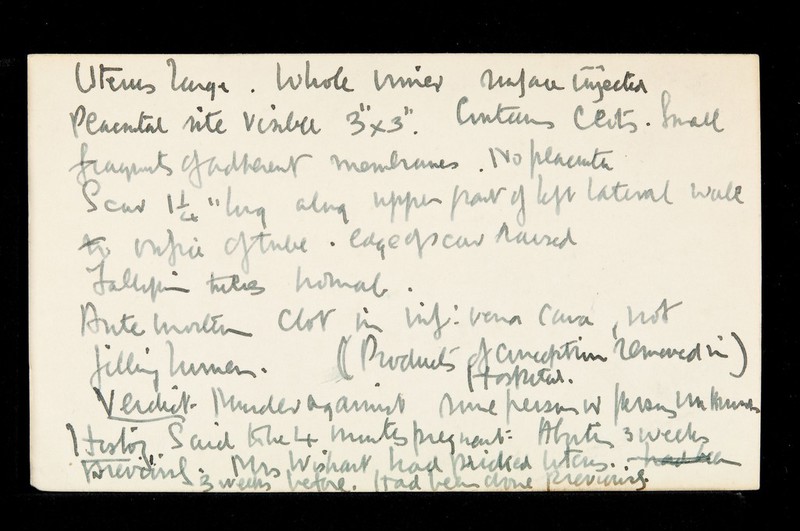 Uterus large. Whole inner surface injected
Placental site visible 3"x3". Contains clots. Small
fragments of adherent membranes. No placenta
Scar 1¼" long along upper part of left lateral wall
to orifice of tube. edge of scar raised
Fallopian tubes normal.
Ante mortem clot in inf: vena cava, not
filling lumen. (Products of conception removed in)
Hospital.
Verdict. Murder against some person or persons unknown
History Said to be 4 months pregnant. 3 weeks
previously. Mrs Wishart had pricked uterus. had been
3 weeks before. Had been done previously